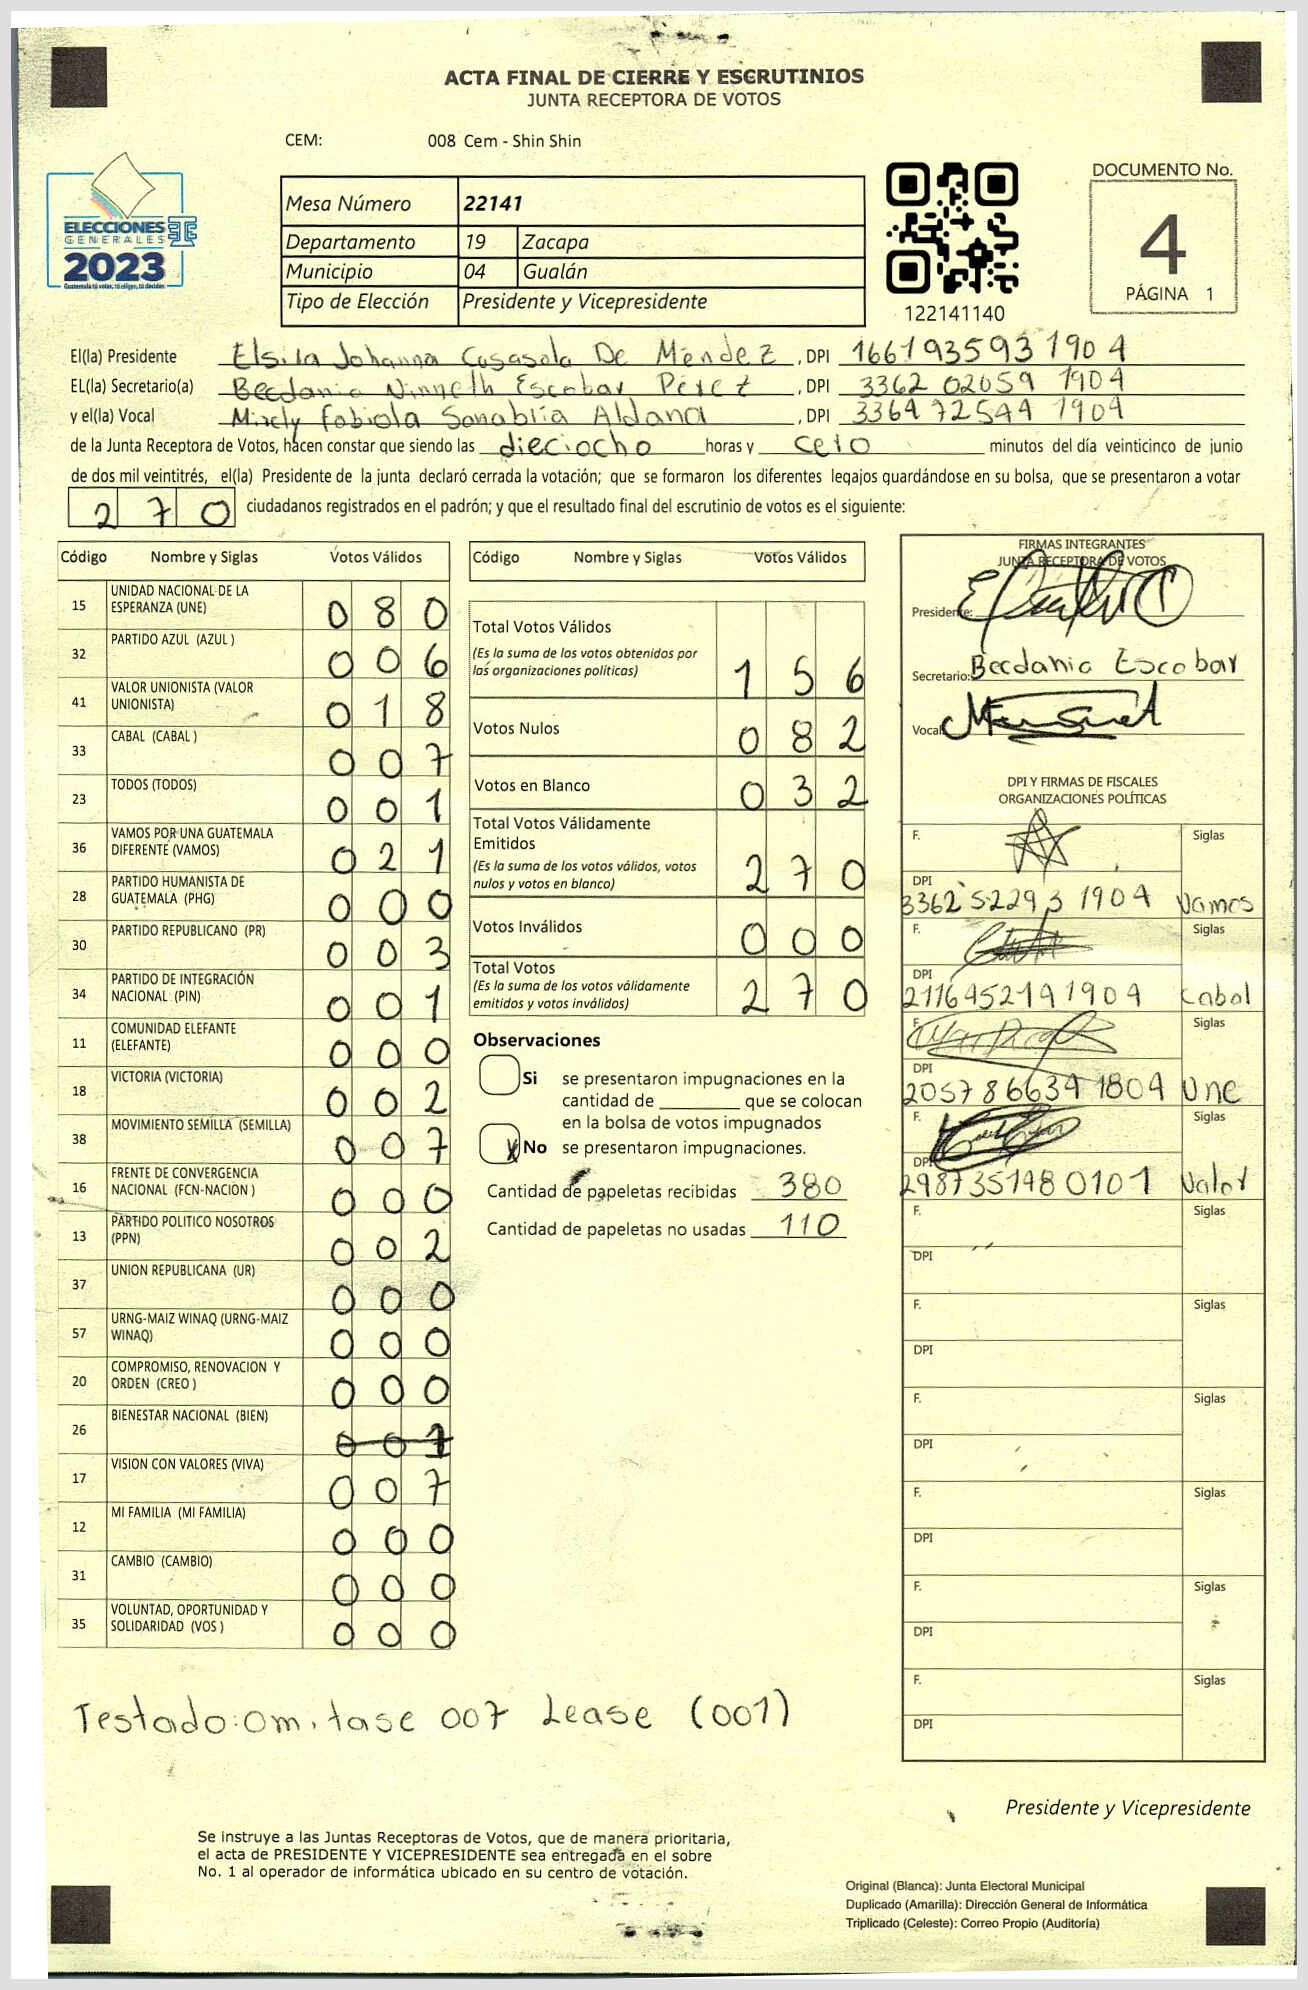 ACTA FINAL DE CIERRE Y ESCRUTINIOS
JUNTA RECEPTORA DE VOTOS
CEM: 008 Cem - Shin Shin
ELECCIONES
GENERALES
2023
Guatemala tú votas, tú eliges, tú decides
Mesa Número 22141
Departamento 19 Zacapa
Municipio 04 Gualán
Tipo de Elección Presidente y Vicepresidente
122141140
DOCUMENTO No.
4
PÁGINA 1
El(la) Presidente Elsita Johanna Casasola De Méndez, DPI 1661935931904
EL(la) Secretario(a) Becdania Ninneth Escobar Pérez, DPI 3362 02059 1904
y el(la) Vocal Mirely Fabiola Sanabria Aldana, DPI 3364 72544 1904
de la Junta Receptora de Votos, hacen constar que siendo las dieciocho horas y cero minutos del día veinticinco de junio
de dos mil veintitrés, el(la) Presidente de la junta declaró cerrada la votación; que se formaron los diferentes legajos guardándose en su bolsa, que se presentaron a votar
270 ciudadanos registrados en el padrón; y que el resultado final del escrutinio de votos es el siguiente:
Código Nombre y Siglas Votos Válidos
15 UNIDAD NACIONAL DE LA ESPERANZA (UNE) 080
32 PARTIDO AZUL (AZUL ) 006
41 VALOR UNIONISTA (VALOR UNIONISTA) 018
33 CABAL (CABAL ) 007
23 TODOS (TODOS) 001
36 VAMOS POR UNA GUATEMALA DIFERENTE (VAMOS) 021
28 PARTIDO HUMANISTA DE GUATEMALA (PHG) 000
30 PARTIDO REPUBLICANO (PR) 003
34 PARTIDO DE INTEGRACIÓN NACIONAL (PIN) 001
11 COMUNIDAD ELEFANTE (ELEFANTE) 000
18 VICTORIA (VICTORIA) 002
38 MOVIMIENTO SEMILLA (SEMILLA) 007
16 FRENTE DE CONVERGENCIA NACIONAL (FCN-NACION ) 000
13 PARTIDO POLITICO NOSOTROS (PPN) 002
37 UNION REPUBLICANA (UR) 000
57 URNG-MAIZ WINAQ (URNG-MAIZ WINAQ) 000
20 COMPROMISO, RENOVACION Y ORDEN (CREO ) 000
26 BIENESTAR NACIONAL (BIEN) 001
17 VISION CON VALORES (VIVA) 007
12 MI FAMILIA (MI FAMILIA) 000
31 CAMBIO (CAMBIO) 000
35 VOLUNTAD, OPORTUNIDAD Y SOLIDARIDAD (VOS ) 000
Código Nombre y Siglas Votos Válidos
Total Votos Válidos
(Es la suma de los votos obtenidos por las organizaciones políticas) 156
Votos Nulos 082
Votos en Blanco 032
Total Votos Válidamente Emitidos
(Es la suma de los votos válidos, votos nulos y votos en blanco) 270
Votos Inválidos 000
Total Votos
(Es la suma de los votos válidamente emitidos y votos inválidos) 270
Observaciones
Si se presentaron impugnaciones en la
cantidad de ________ que se colocan
en la bolsa de votos impugnados
X No se presentaron impugnaciones.
Cantidad de papeletas recibidas 380
Cantidad de papeletas no usadas 110
FIRMAS INTEGRANTES
JUNTA RECEPTORA DE VOTOS
Presidente:
Secretario: Becdania Escobar
Vocal:
DPI Y FIRMAS DE FISCALES
ORGANIZACIONES POLÍTICAS
F. Siglas
DPI
3362 52293 1904 Vamos
F. Siglas
DPI
2116452191904 Cabal
F. Siglas
DPI
2057866341804 Une
F. Siglas
DPI
2987351480101 Valor
F. Siglas
DPI
F. Siglas
DPI
F. Siglas
DPI
F. Siglas
DPI
F. Siglas
DPI
F. Siglas
DPI
Testado: Omitase 007 Lease (001)
Presidente y Vicepresidente
Se instruye a las Juntas Receptoras de Votos, que de manera prioritaria,
el acta de PRESIDENTE Y VICEPRESIDENTE sea entregada en el sobre
No. 1 al operador de informática ubicado en su centro de votación.
Original (Blanca): Junta Electoral Municipal
Duplicado (Amarilla): Dirección General de Informática
Triplicado (Celeste): Correo Propio (Auditoría)